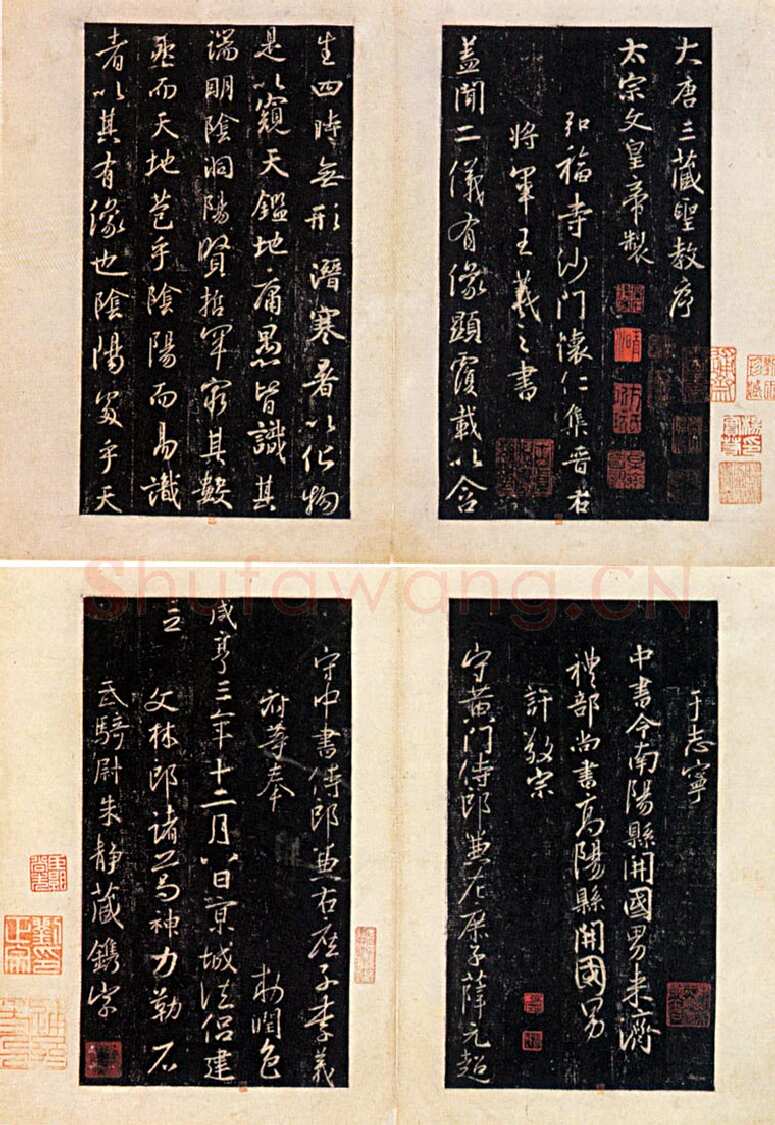 大唐三藏聖教序
太宗文皇帝製
弘福寺沙門懷仁集晉右
將軍王羲之書
蓋聞二儀有像顯覆載以含
生四時無形潛寒暑以化物
是以窺天鑑地庸愚皆識其
端明陰洞陽賢哲罕窮其數
然而天地苞乎陰陽而易識
者以其有像也陰陽處乎天
Shufawang.CN
于志寧
中書令南陽縣開國男來濟
禮部尚書高陽縣開國男
許敬宗
守黃門侍郎兼左庶子薛元超
守中書侍郎兼右庶子李義
府等奉 敕潤色
咸亨三年十二月八日京城法侶建
立
文林郎諸葛神力勒石
武騎尉朱靜藏鐫字